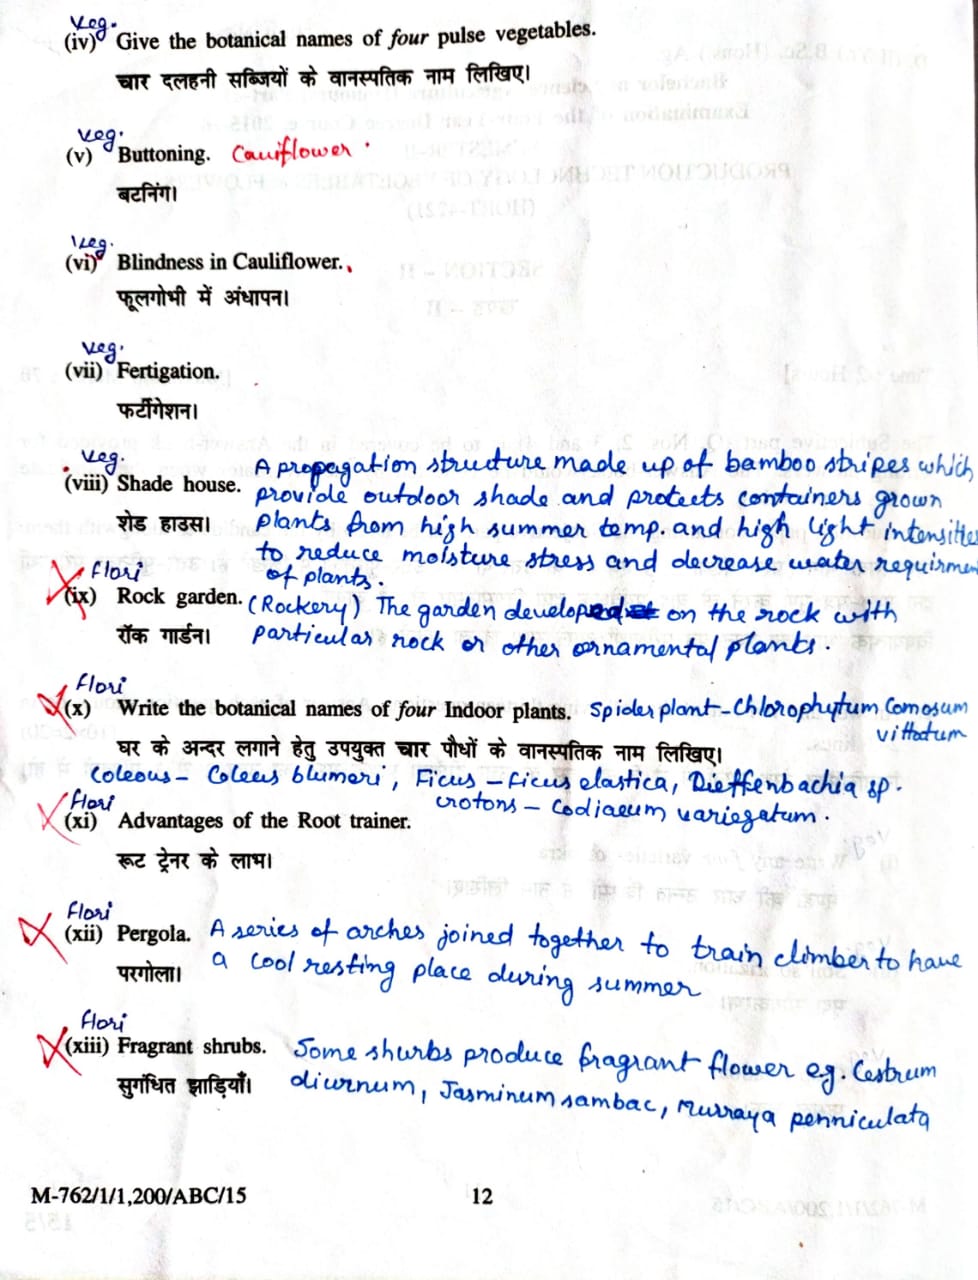 Veg.
(iv) Give the botanical names of four pulse vegetables.
चार दलहनी सब्जियों के वानस्पतिक नाम लिखिए।
Veg.
(v) Buttoning. Cauiflower
बटनिंग।
Veg.
(vi) Blindness in Cauliflower.
फूलगोभी में अंधापन।
Veg.
(vii) Fertigation.
फर्टीगेशन।
Veg.
A propagation structure made up of bamboo stripes which
(viii) Shade house. provide outdoor shade and protects containers grown
शेड हाउस। plants from high summer temp. and high light intensities
to reduce moisture stress and decrease water requirment
Flori
of plants.
(ix) Rock garden. (Rockery) The garden developed on the rock with
रॉक गार्डन। particular rock or other ornamental plants.
Flori
(x) Write the botanical names of four Indoor plants. Spider plant - Chlorophytum Comosum
vittatum
घर के अन्दर लगाने हेतु उपयुक्त चार पौधों के वानस्पतिक नाम लिखिए।
Coleous - Coleus blumeri, Ficus - ficus elastica, Dieffenbachia sp.
Flori
crotons - Codiaeum variegatum.
(xi) Advantages of the Root trainer.
रूट ट्रेनर के लाभ।
Flori
(xii) Pergola. A series of arches joined together to train climber to have
परगोला। a cool resting place during summer
Flori
(xiii) Fragrant shrubs. Some shurbs produce fragrant flower eg. Cestrum
सुगंधित झाड़ियाँ। diurnum, Jasminum sambac, Murraya penniculata
M-762/1/1,200/ABC/15 12